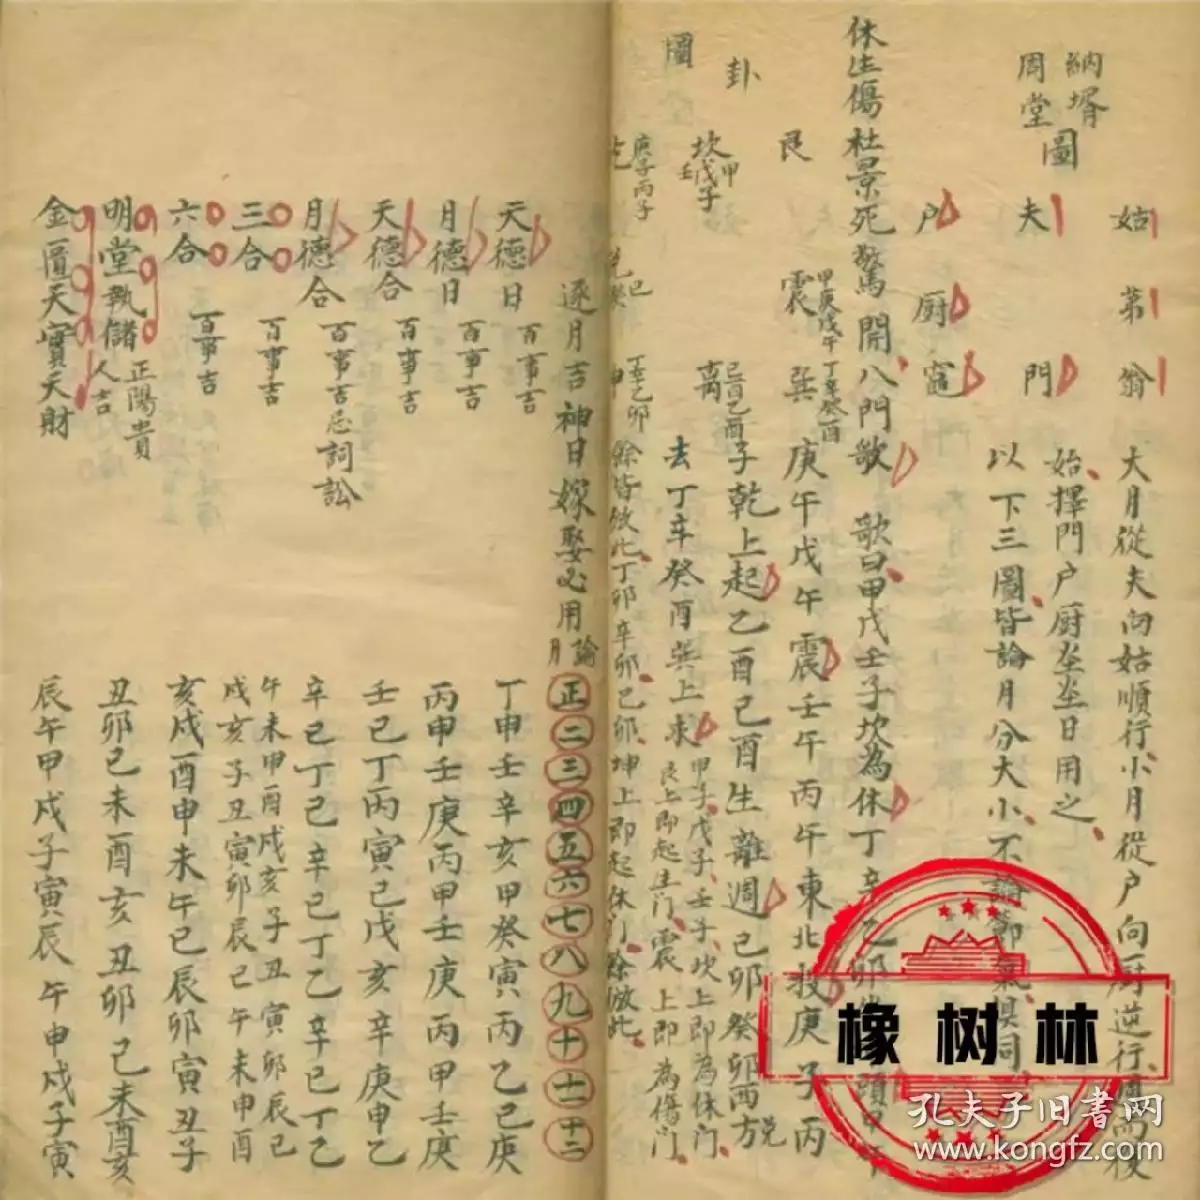 納壻
周堂
圖
姑 夫 户
弟 厨
翁 門 竈
大月從夫向姑順行小月從户向厨逆行周而復
始擇門户厨灶日用之
以下三圖皆論月分大小不論節氣俱同
休生傷杜景死驚開八門歌 歌曰甲戊壬子坎為休丁辛乙卯
艮 震 甲庚戊午 巽 丁辛癸酉
庚午戊午震壬午丙午東北投庚子丙
卦
坎 甲戊壬子 离 己酉乙酉
子乾上起乙酉己酉生離週己卯癸卯西方兑
圖
去丁辛癸酉巽上求 甲子戊子壬子坎上即為休門
艮上即起生門震上即為傷門
庚子丙子
丁辛乙卯
餘皆倣此丁卯辛卯己卯坤上即起休门餘倣此
逐月吉神日嫁娶必用論月 正 二 三 四 五 六 七 八 九 十 十一 十二
天德日 百事吉 丁申壬辛亥甲癸寅丙乙巳庚
月德日 百事吉 丙甲壬庚丙甲壬庚丙甲壬庚
天德合 百事吉 壬巳丁丙寅己戊亥辛庚申乙
月德合 百事吉忌詞訟 辛己丁乙辛己丁乙辛己丁乙
三合 百事吉 午未申酉戌亥子丑寅卯辰巳
戌亥子丑寅卯辰巳午未申酉
六合 百事吉 亥戌酉申未午巳辰卯寅丑子
明堂執儲 正陽貴人吉 丑卯巳未酉亥丑卯巳未酉亥
金匱天寶天財 辰午申戌子寅辰午申戌子寅
橡树林
孔夫子旧书网
www.kongfz.com